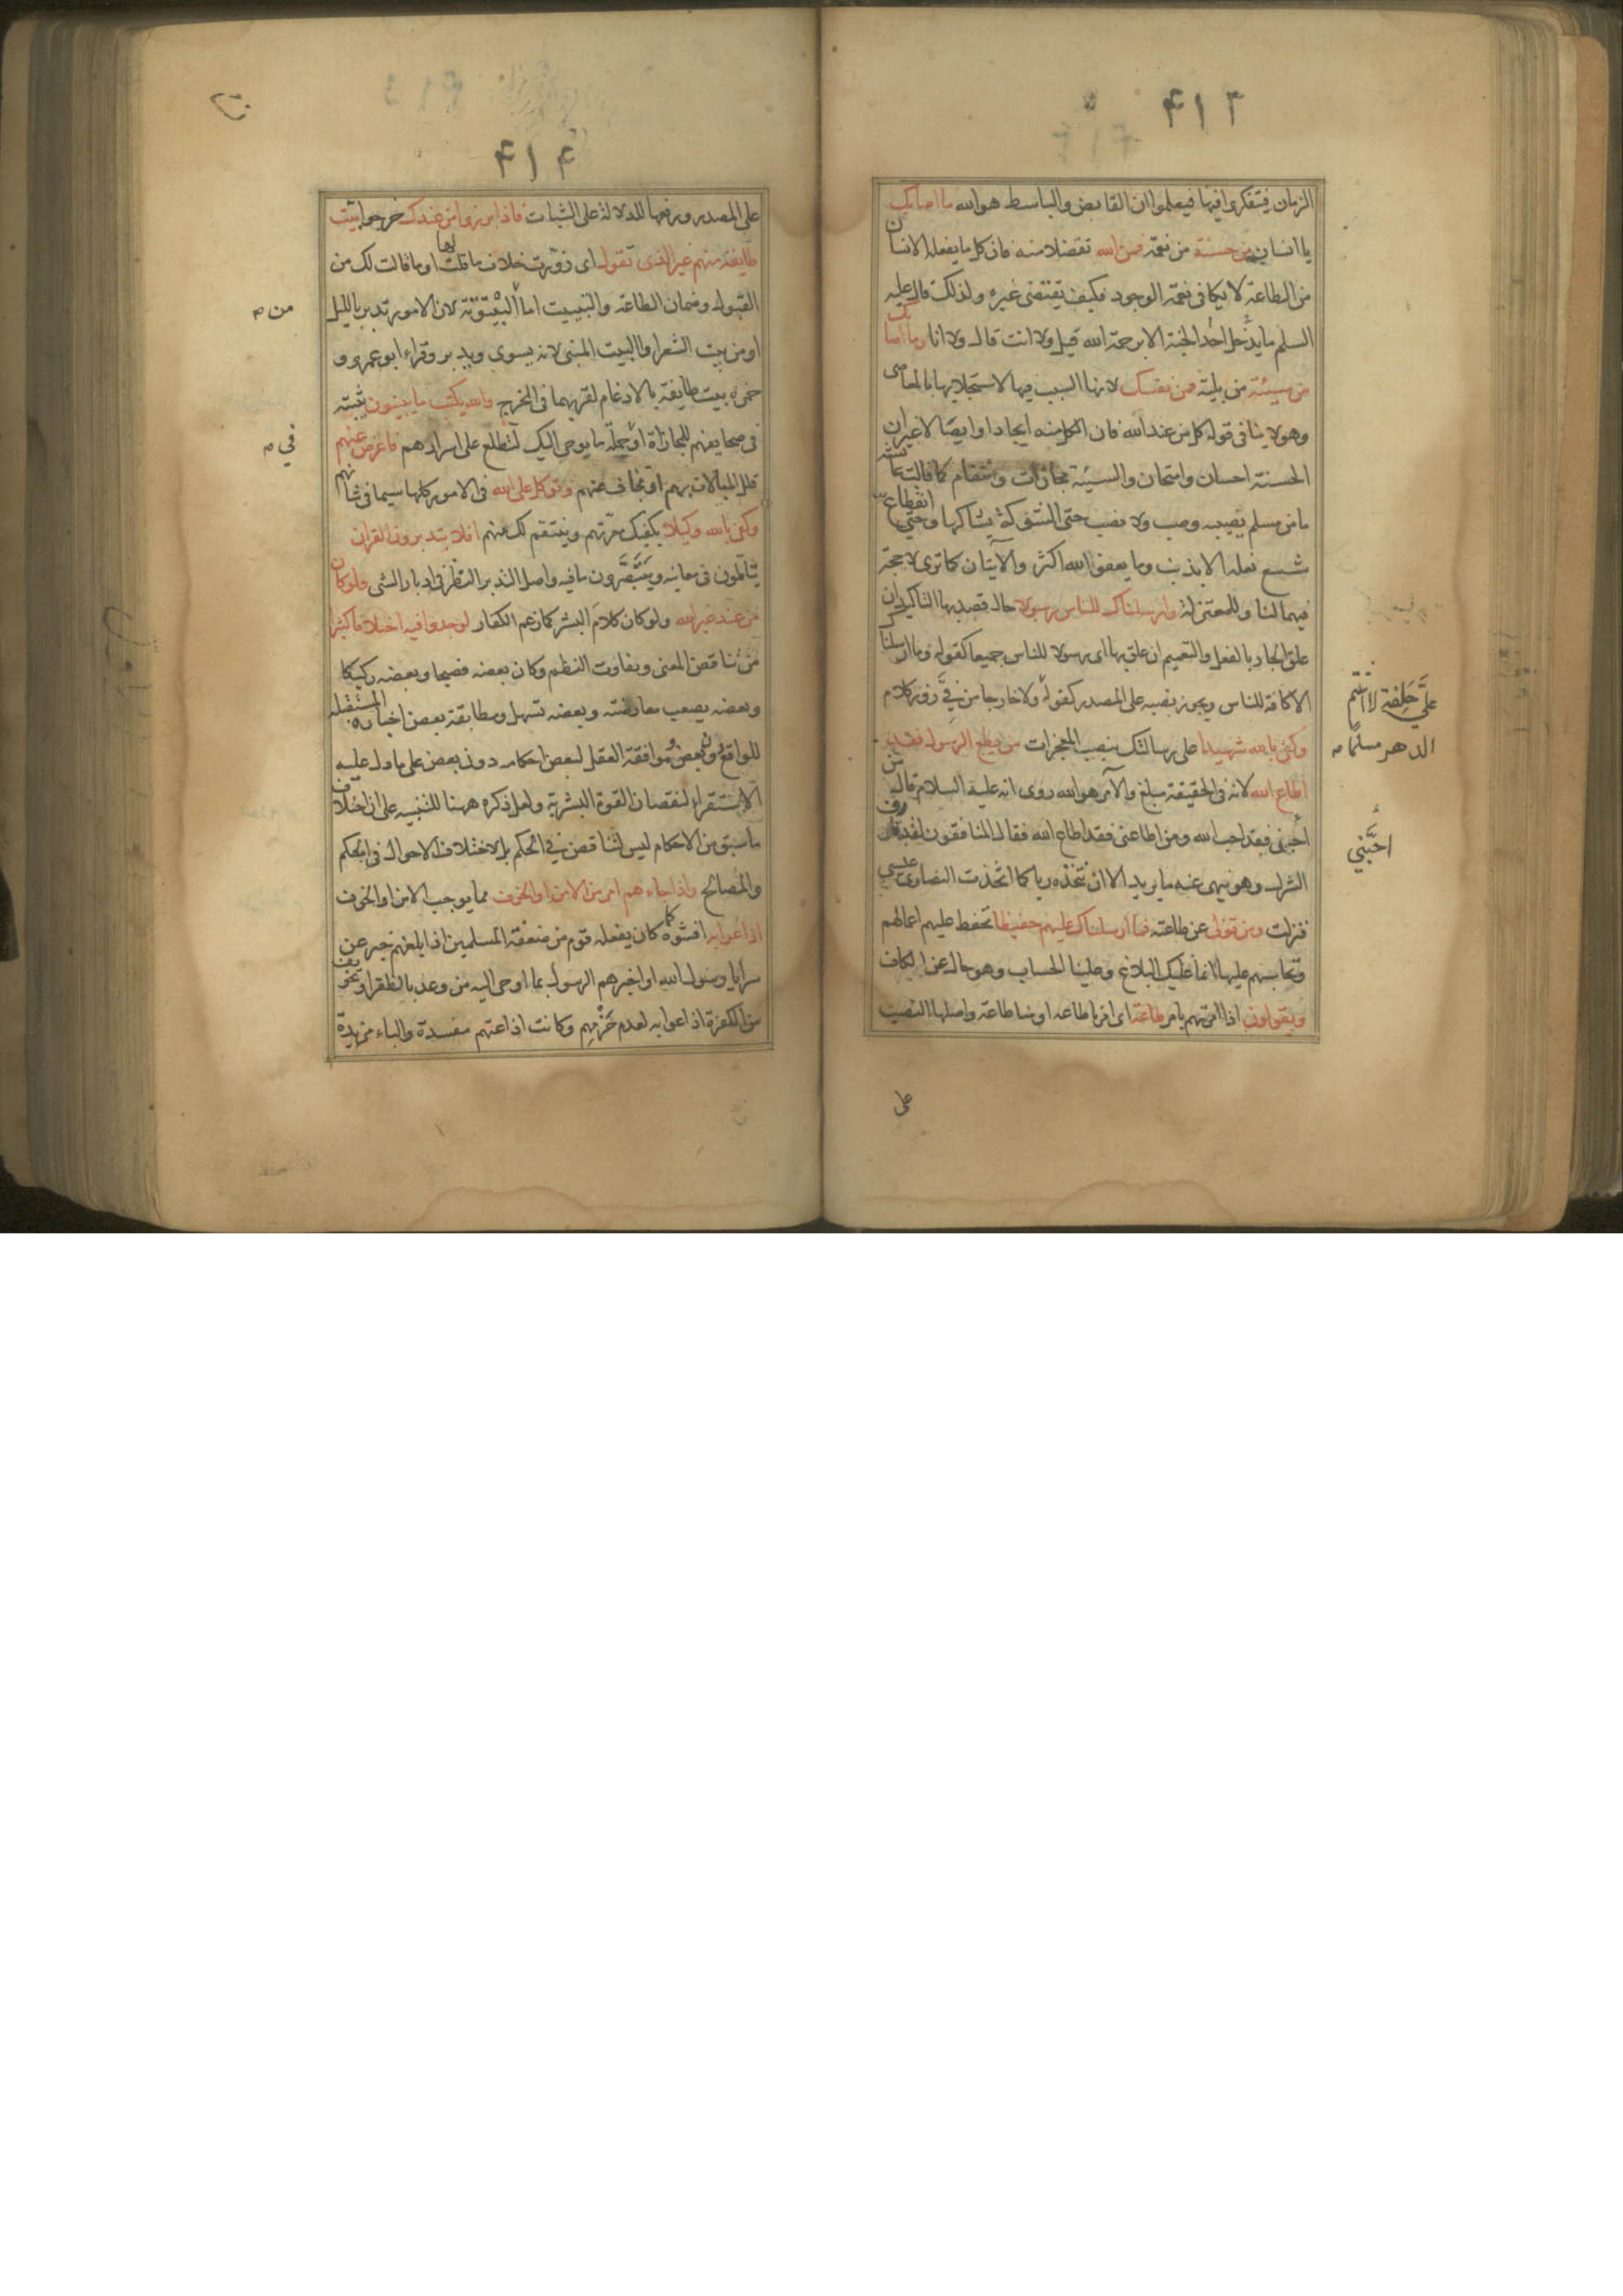 ٤١٣
الزمان فيتفكرو افيها فيعلموا ان القابض والباسط هو الله ما اصابك
يا انسان من حسنة من نعمة فمن الله تفضلا منه فان كل ما يفعله الانسان
من الطاعة لا يكافى نعمة الوجود فكيف يقتضى غيره ولذلك قال عليه
السلم ما يدخل احد الجنة الا برحمة الله قيل ولا انت قال ولا انا وما اصابك
من سيئة من بلية فمن نفسك لانها السبب فيها لاستجلابها بالمعاصى
وهو لا ينافى قوله كل من عند الله فان الكل منه ايجادا وايصالا غير ان
الحسنة احسان وامتحان والسيئة مجازات وانتقام كما قالت عائشة
ما من مسلم يصيبه وصب ولا نصب حتى الشوكة يشاكها وحتى انقطاع
شسع نعله الا بذنب وما يعفو الله اكثر والآيتان كما ترى لا حجة
فيهما لنا وللمعتزلة وارسلناك للناس رسولا حال قصد بها التاكيد ان
علق الجار بالفعل والتعميم ان علق بها اى رسولا للناس جميعا كقوله وما ارسلناك
الا كافة للناس ويجوز نصبه على المصدر كقوله ولا خارجا من فِيَّ زور كلام
على حَلِفة لا اشتم
الدهر مسلمًا
وكفى بالله شهيدا على رسالتك بنصب المعجزات من يطع الرسول فقد
اطاع الله لانه فى الحقيقة مبلغ والآمر هو الله روى انه عليه السلام قال من
احبنى فقد احب الله ومن اطاعنى فقد اطاع الله فقال المنافقون لقد قارف
احَبَّني
الشرك وهو ينهى عنه ما يريد الا ان نتخذه ربا كما اتخذت النصارى عيسى
فنزلت ومن تولى عن طاعته فما ارسلناك عليهم حفيظا تحفظ عليهم اعمالهم
وتحاسبهم عليها انما عليك البلاغ وعلينا الحساب وهو حال عن الكاف
ويقولون اذا امرتهم بامر طاعة اى امرنا طاعة او منا طاعة واصلها النصب
على
٤١٤
على المصدر ورفعها للدلالة على الثبات فاذا برزوا من عندك خرجوا بيّت
طايفة منهم غير الذى تقول اى زوّرت خلاف ما قلت لها او ما قالت لك من
القبول وضمان الطاعة والتبييت اما من البيتوتة لان الامور تدبر بالليل
من
او من بيت الشعر او البيت المبنى لانه يسوى ويدبر وقراء ابو عمرو و
حمزه بيت طايفة بالادغام لقربهما فى المخرج والله يكتب ما يبيتون يثبته
فى صحايفهم للمجازاة او جملة ما يوحى اليك لتطلع على اسرارهم فاعرض عنهم
في
قلل المبالات بهم او تجاف عنهم وتوكل على الله فى الامور كلها سيما فى شانهم
وكفى بالله وكيلا يكفيك معرّتهم وينتقم لك منهم افلا يتدبرون القران
يتاملون فى معانيه ويتبصّرون ما فيه واصل التدبر النظر فى ادبار الشى ولو كان
من عند غير الله ولو كان كلام البشر كما زعم الكفار لوجدوا فيه اختلافا كثيرا
من تناقض المعنى وتفاوت النظم وكان بعضه فصيحا وبعضه ركيكا
وبعضه يصعب معارضته وبعضه تسهل ومطابقة بعض اخباره المستقبله
للواقع دون بعض وموافقة العقل لبعض احكامه دون بعض على ما دل عليه
الاستقراء لنقصان القوة البشرية ولعل ذكره ههنا للتنبيه على ان اختلاف
ما سبق من الاحكام ليس لتناقض في الحكم بل لاختلاف الاحوال فى الحكم
والمصالح واذا جاءهم امر من الامن او الخوف مما يوجب الامن او الخوف
اذاعوا به افشوه كما كان يفعله قوم من ضعفة المسلمين اذا بلغهم خبر عن
سرايا رسول الله او اخبرهم الرسول بما اوحى اليه من وعد بالظفر او تخويف
من الكفرة اذاعوا به لعدم حَزْمِهِم وكانت اذاعتهم مفسدة والباء مزيدة